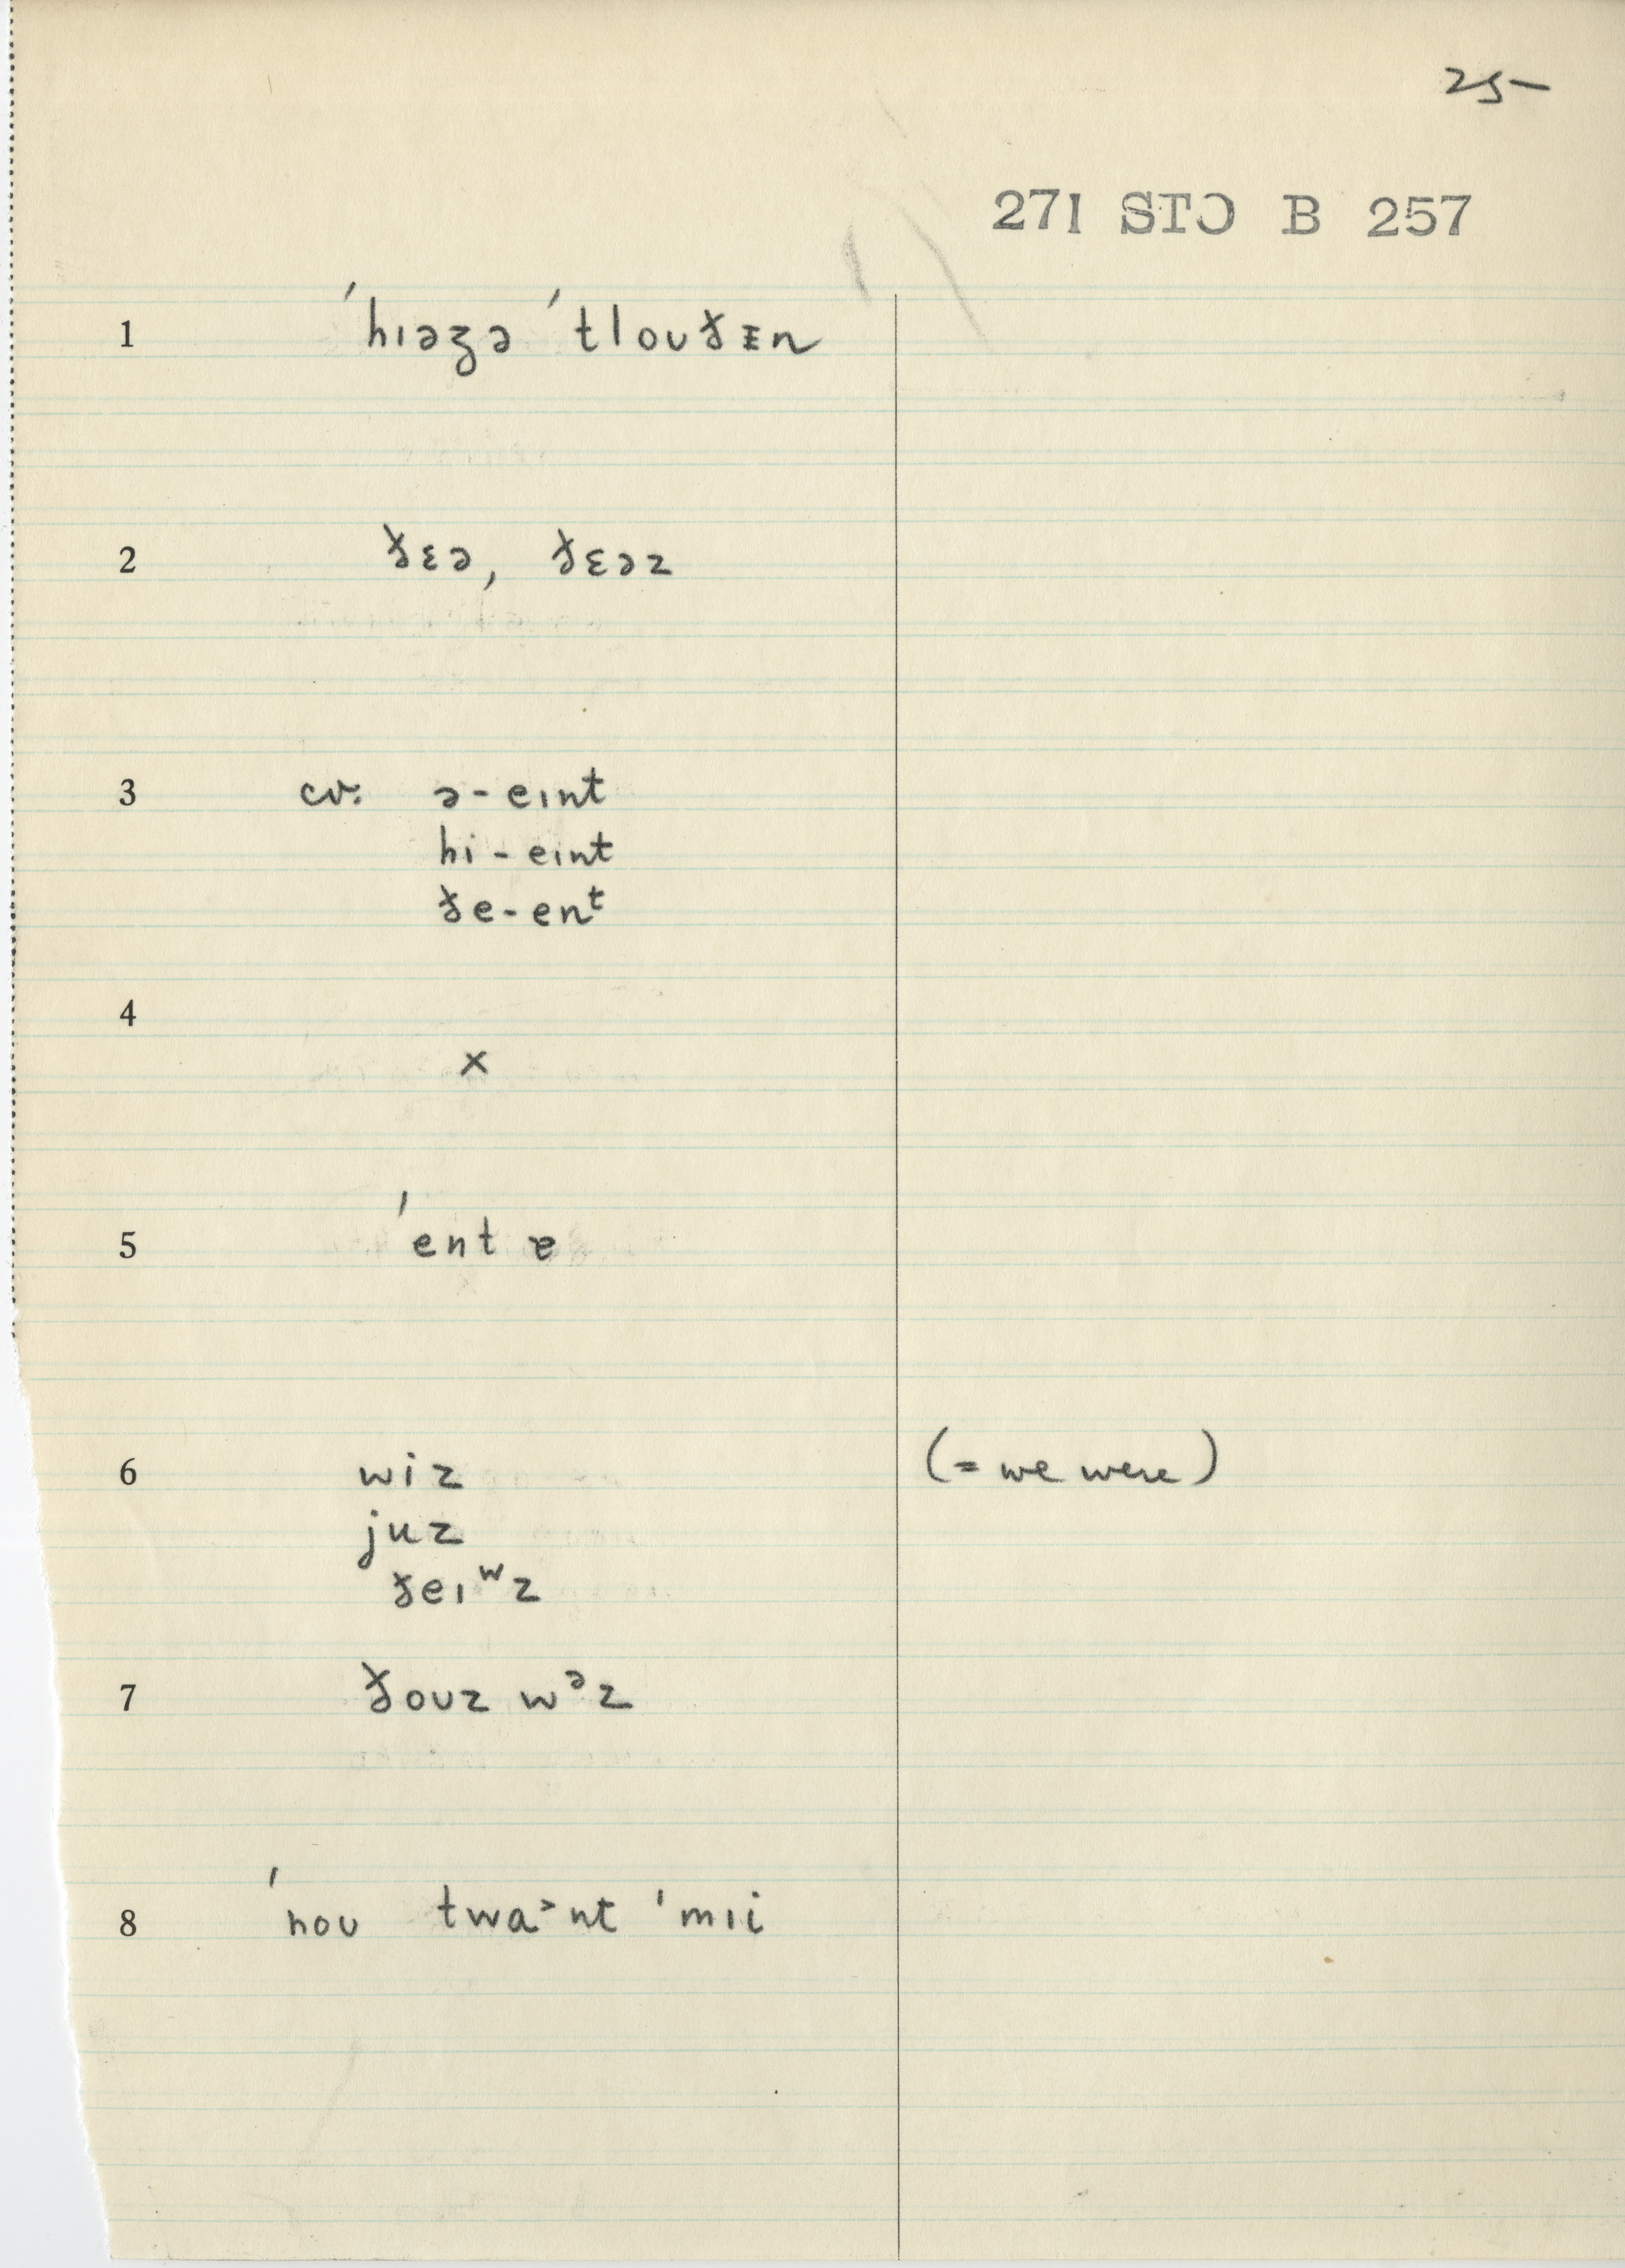 25
271 STO B 257
1 ˈhɪəʒə ˈtloʊðᵻn
2 ðɛə, ðɛəz
3 cv. ə-eɪnt
hi-eɪnt
ðe-enᵗ
4
x
5 ˈent ɐ
6 wiz (= we were)
juz
ðeɪʷz
7 ðoʊz wᵊz
8 ˈnoʊ twaᵊnt ˈmɪi